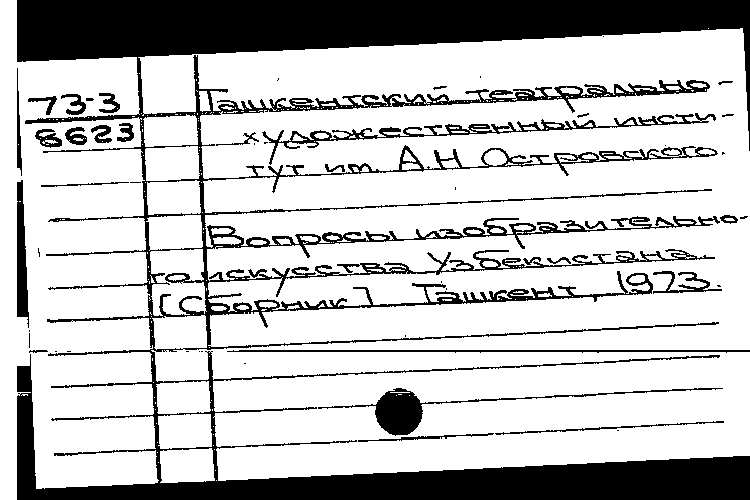 73-3
8623
Ташкентский театрально-
художественный инсти-
тут им. А.Н Островского.
Вопросы изобразительно-
го искусства Узбекистана.
[Сборник] Ташкент, 1973.